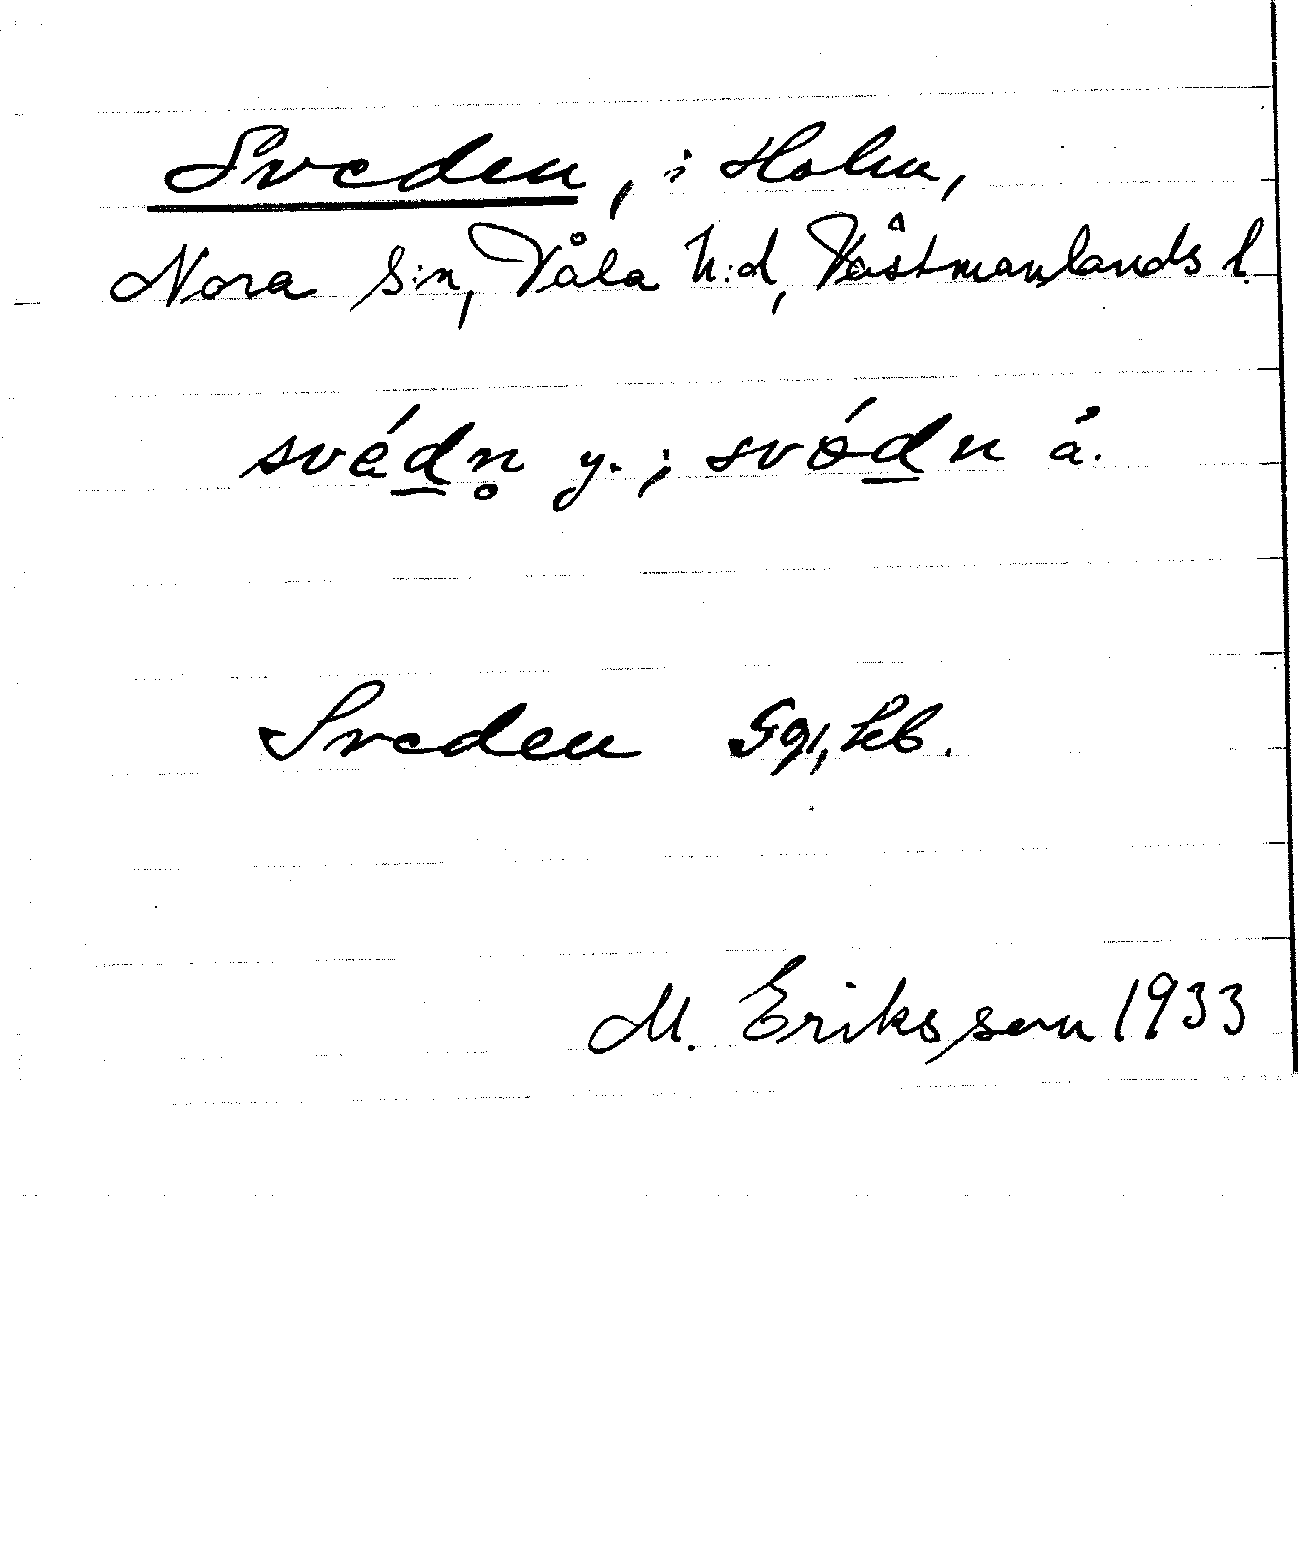 Sveden, i Holm,
Nora s:n, Våla h:d, Västmanlands l.
svéd̲n̥ y.; svód̲n ä.
Sveden Gg, kb.
M. Eriksson 1933